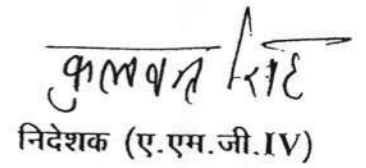 कुलवन्त सिंह
निदेशक (ए.एम.जी.IV)